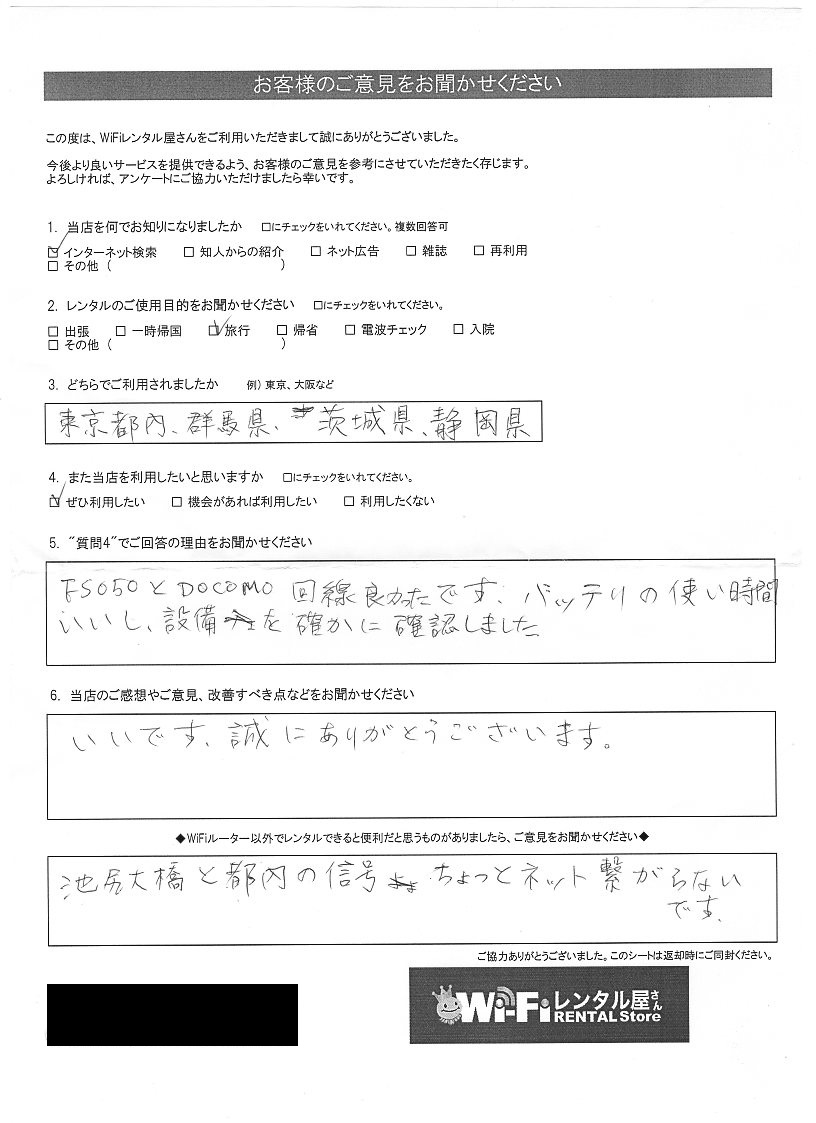 お客様のご意見をお聞かせください
この度は、WiFiレンタル屋さんをご利用いただきまして誠にありがとうございました。
今後より良いサービスを提供できるよう、お客様のご意見を参考にさせていただきたく存じます。
よろしければ、アンケートにご協力いただけましたら幸いです。
1. 当店を何でお知りになりましたか □にチェックをいれてください。複数回答可
☑ インターネット検索 □ 知人からの紹介 □ ネット広告 □ 雑誌 □ 再利用
□ その他 ( )
2. レンタルのご使用目的をお聞かせください □にチェックをいれてください。
□ 出張 □ 一時帰国 ☑ 旅行 □ 帰省 □ 電波チェック □ 入院
□ その他 ( )
3. どちらでご利用されましたか 例) 東京、大阪など
東京都内、群馬県、茨城県、静岡県
4. また当店を利用したいと思いますか □にチェックをいれてください。
☑ ぜひ利用したい □ 機会があれば利用したい □ 利用したくない
5. "質問4"でご回答の理由をお聞かせください
FS050とDOCOMO 回線良かったです、バッテリの使い時間
いいし、設備を確かに確認しました
6. 当店のご感想やご意見、改善すべき点などをお聞かせください
いいです、誠にありがとうございます。
◆WiFiルーター以外でレンタルできると便利だと思うものがありましたら、ご意見をお聞かせください◆
池尻大橋と都内の信号 ちょっとネット繋がらない
です、
ご協力ありがとうございました。このシートは返却時にご同封ください。
Wi-Fiレンタル屋さん
RENTAL Store